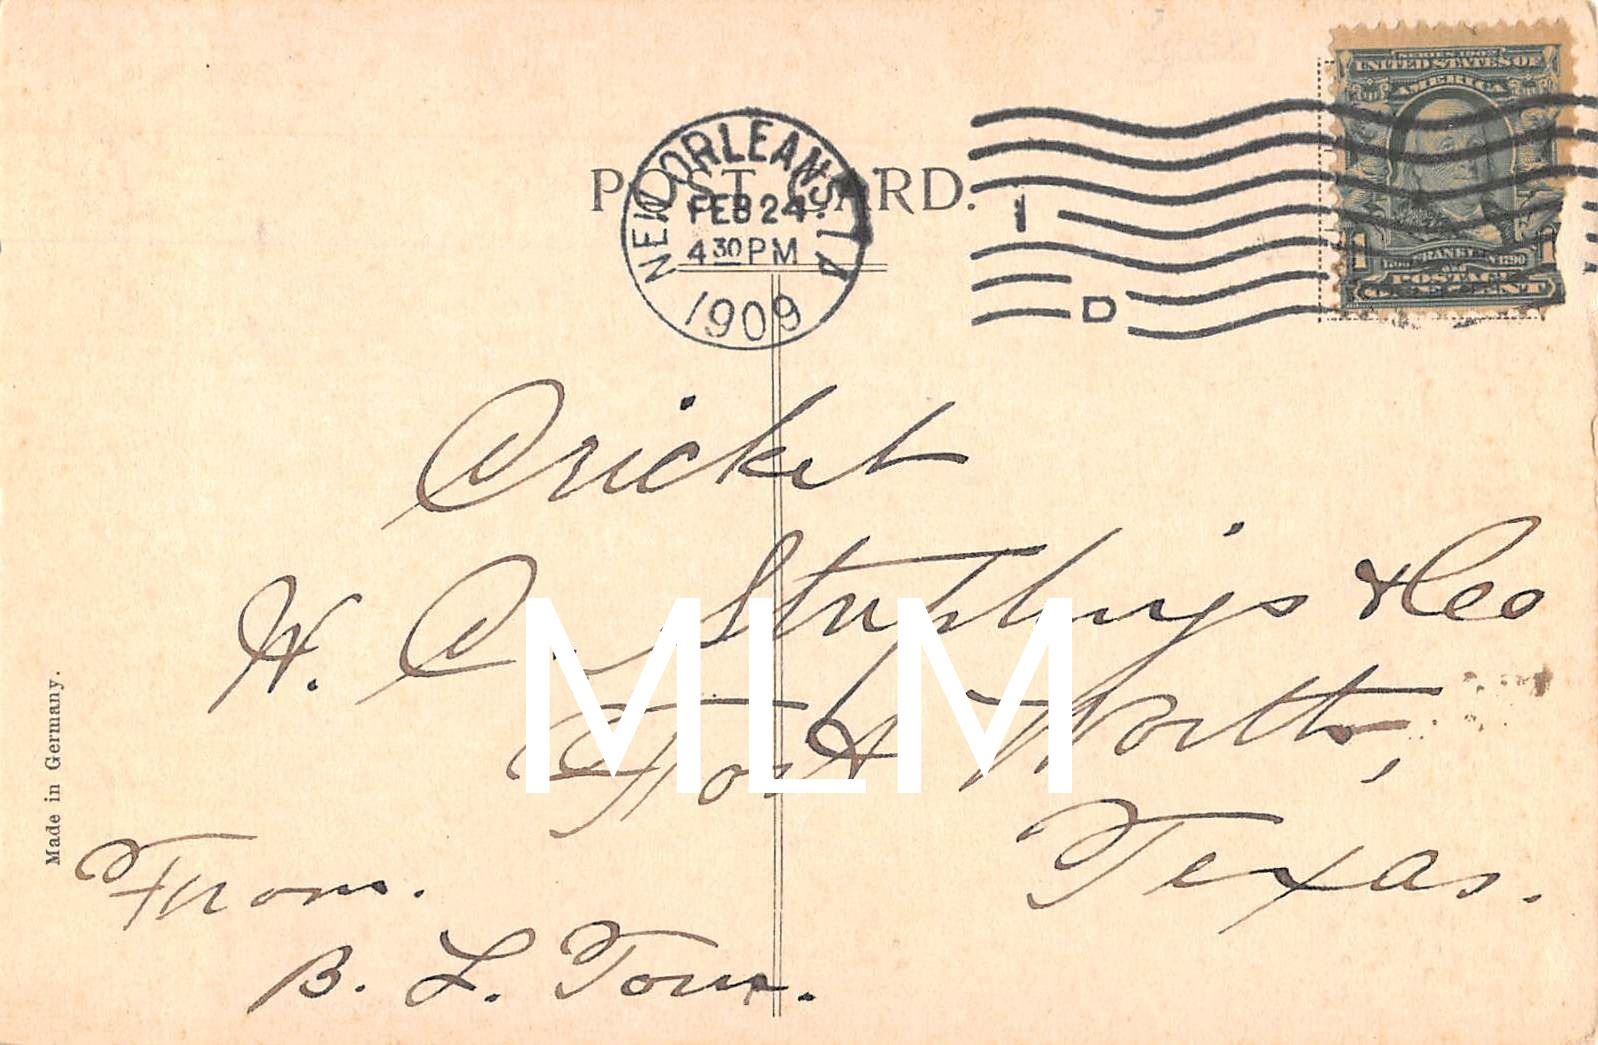 SERIES 1902
UNITED STATES OF
AMERICA
POST CARD.
NEW ORLEANS, LA
FEB 24
4 30 PM
1909
1
D
1 1
FRANKLIN 1790
POSTAGE
ONE CENT
Cricket
H. C. Stripling & Co
Fort Worth,
Texas.
From.
B. L. Tom.
Made in Germany.
MLM